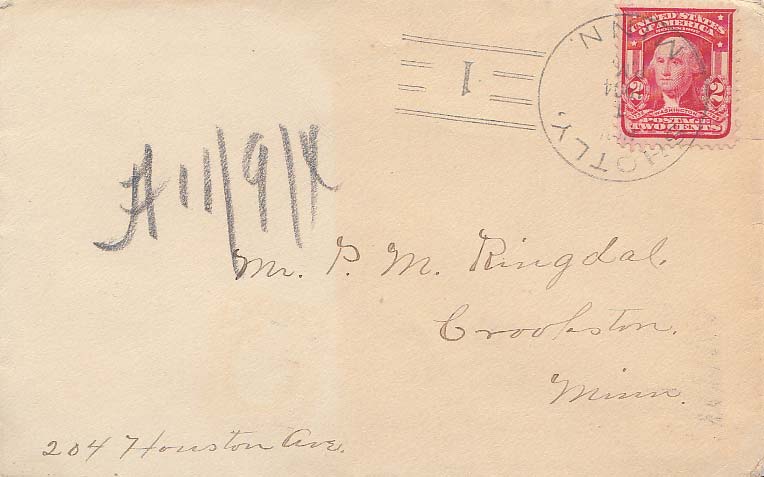 1
HOTLY.
NN.
UNITED STATES
OF AMERICA
2 WASHINGTON 2
POSTAGE
TWO CENTS
A 11/9/4
Mr. P. M. Ringdal.
Crookston.
Minn.
204 Houston Ave.